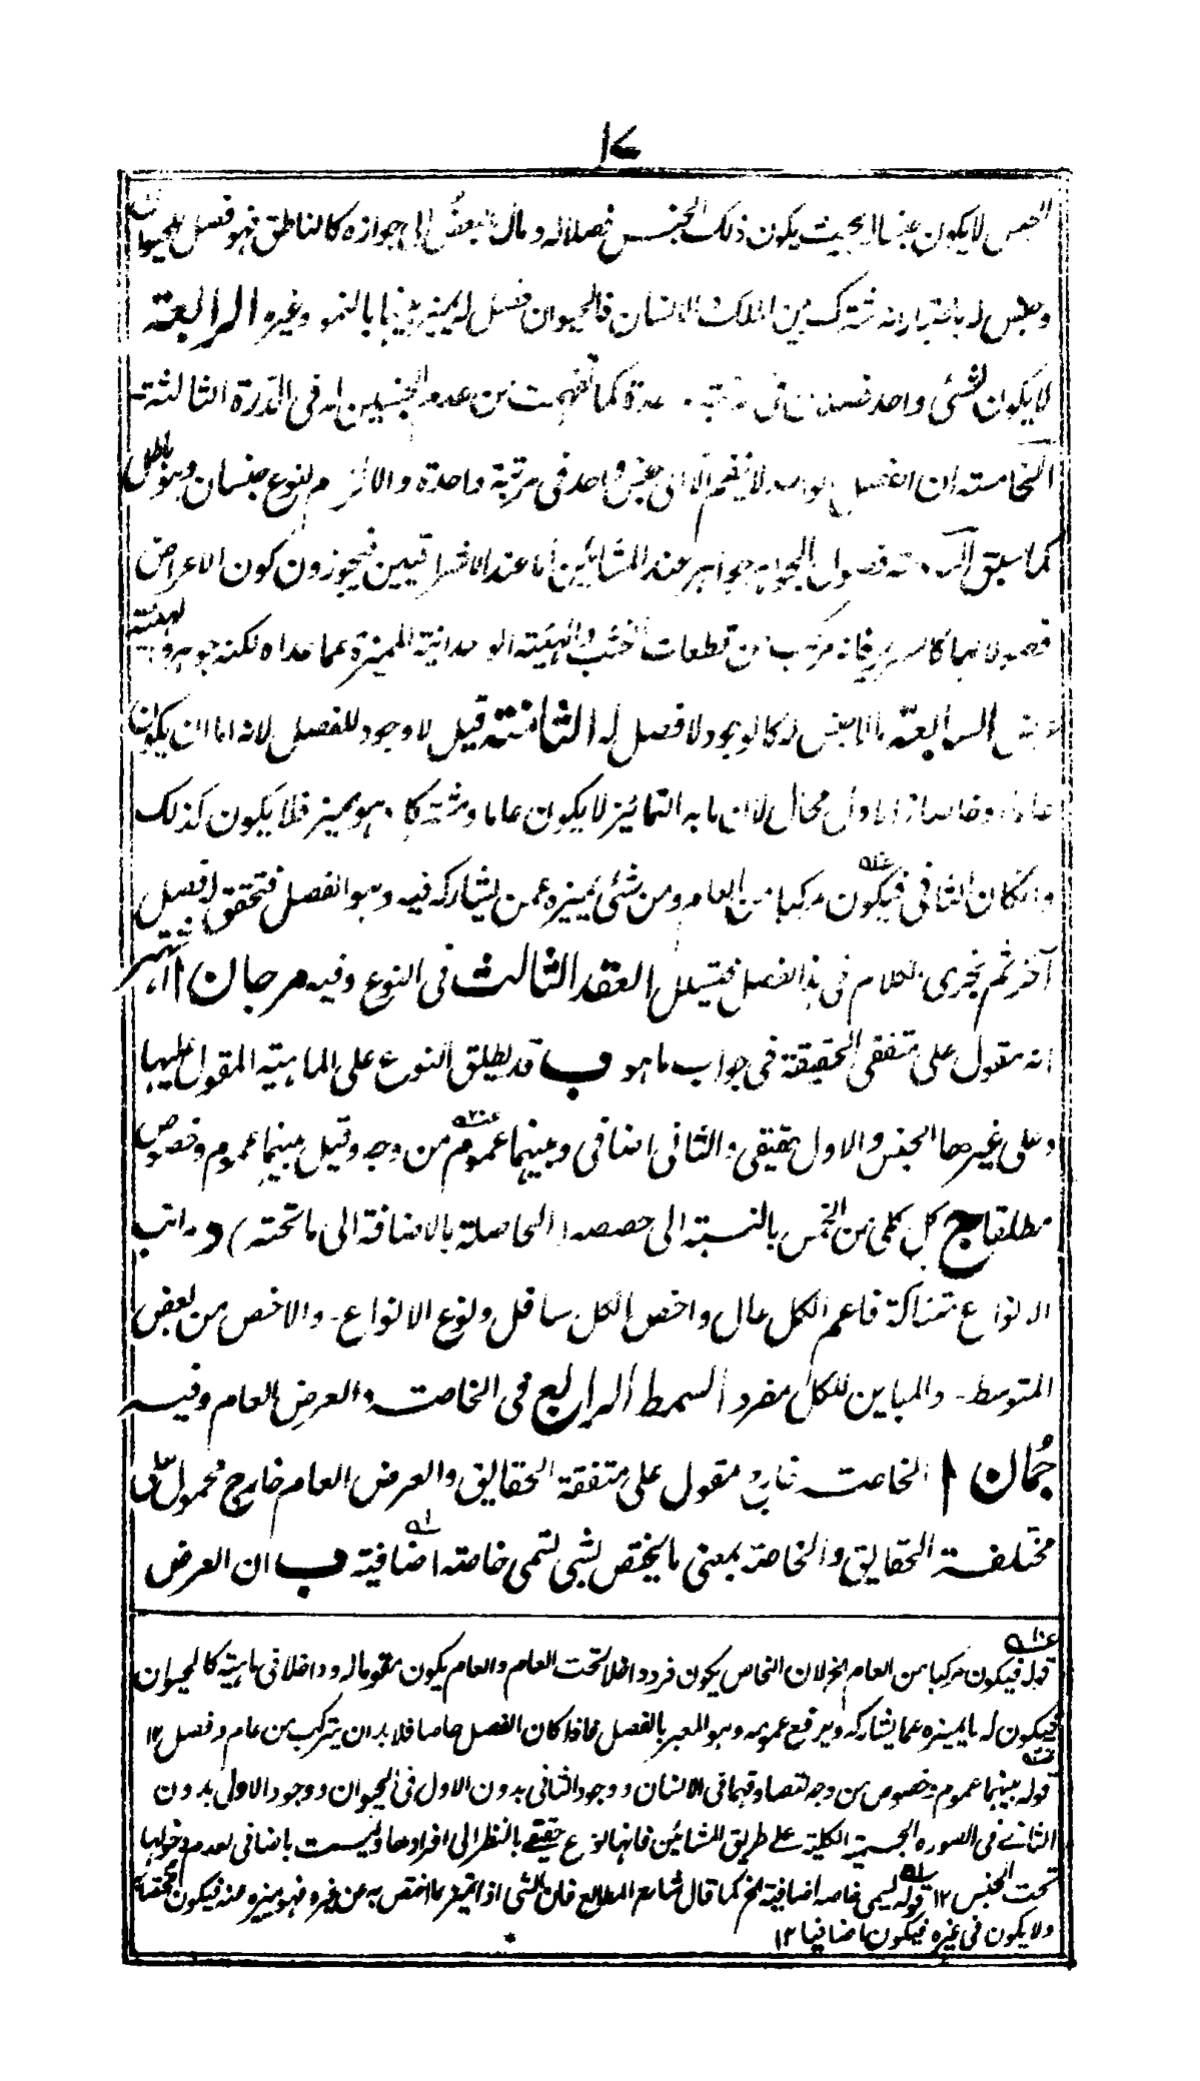 ١٧
لا يكون بحيث يكون ذلك الجنس فصلا له ومال البعض الى جوازه كالناطق فهو فصل للحيوان
وجنس له باعتبار انه مشترك بين الملك والانسان فالحيوان فصل له يميزه بالنمو وغيره الرابعة
لا يكون لشئ واحد كما فهمت من عدم الجنسين له فى الدرة الثالثة
الخامسة ان الفصل لا يقوم الا جنس واحد فى مرتبة واحدة والا لزم لنوع جنسان وهو باطل
كما سبق فصول الجواهر جواهر عند المشائين اما عند الاشراقيين فيجوزون كون الاعراض
فصولا لها كالسرير فانه مركب من قطعات الخشب والهيئة الوحدانية المميزة عما عداه لكنه جوهر والهيئة
السابعة ما لا جنس له كالوجود لا فصل له الثامنة قيل لا وجود للفصل لانه اما ان يكون
عاما او خاصا الاول محال لان ما به التمائز لا يكون عاما ومشتركا وهو مميز فلا يكون كذلك
وان كان الثانى فيكون مركبا من العام ومن شئ يميزه عمن يشاركه فيه وهو الفصل فتحقق لفصل
آخر ثم نجرى الكلام فى هذا الفصل فيتسلسل العقد الثالث فى النوع وفيه مرجان ا اشتهر
انه مقول على متفقى الحقيقة فى جواب ما هو ب قد يطلق النوع على الماهية المقول عليها
وعلى غيرها الجنس والاول حقيقى والثانى اضافى وبينهما عموم من وجه وقيل بينهما عموم وخصوص
مطلقا ج كل كلى من الخمس بالنسبة الى حصصه (الحاصلة بالاضافة الى ما تحته) د مراتب
الانواع متنازلة فاعم الكل عال واخص الكل سافل ونوع الانواع۔ والاخص من بعض
المتوسط۔ والمباين للكل مفرد السمط الرابع فى الخاصة والعرض العام وفيه
جُمان ا الخاصة خارج مقول على متفقة الحقايق والعرض العام خارج محمول على
مختلفة الحقايق والخاصة بمعنى ما يختص بشئ تسمى خاصة اضافية ب ان العرض
قوله فيكون مركبا من العام الخ لان الخاص يكون فردا داخلا تحت العام والعام يكون مقوما له وداخلا فى ماهيته كالحيوان
فيكون له ما يميزه عما يشاركه ويرفع عمومه وهو المعبر بالفصل فاذا كان الفصل خاصا فلا بد ان يتركب من عام وفصل ١٢
قوله بينهما عموم وخصوص من وجه لتصادقهما فى الانسان ووجود الثانى بدون الاول فى الحيوان ووجود الاول بدون
الثانى فى الصورة الجسمية الكلية على طريق المشائين فانها نوع حقيقى بالنظر الى افرادها وليست باضافى لعدم دخولها
تحت الجنس ١٢ قوله تسمى خاصة اضافية الخ كما قال شارح المطالع فان الشئ اذا تميز بما اختص به عن غيره فهو مميزه عنه فيكون مختصا به
ولا يكون فى غيره فيكون اضافيا ١٢